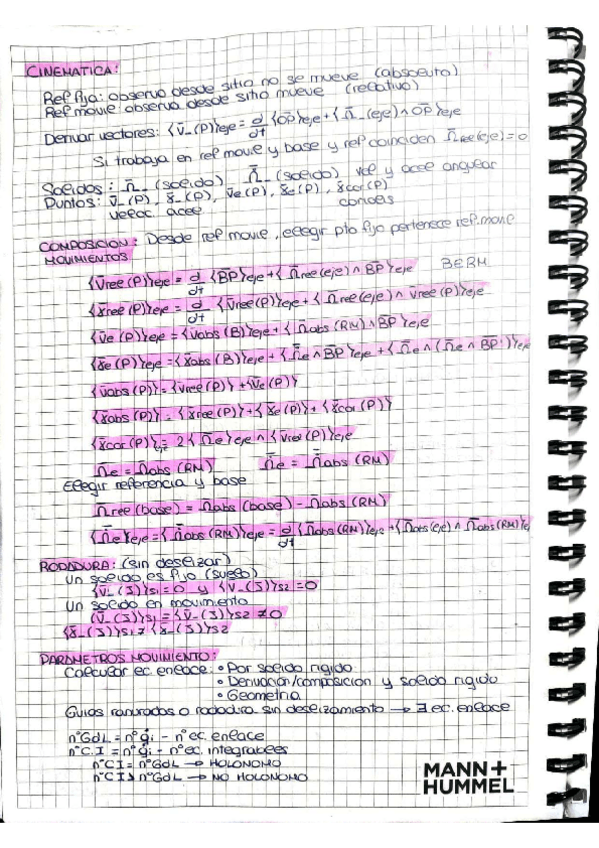 CINEMATICA:
Ref fija: observo desde sitio no se mueve (absoluto)
Ref movil: observo desde sitio mueve (relativo)
Derivar vectores: {v̄_(P)}eje = d/dt {OP}eje + {Ω̄_(eje) ∧ OP}eje
Si trabaja en ref movil y base y ref coinciden Ω̄rel(eje) = 0
Solidos: Ω̄_ (solido), Ω̄̇_ (solido) vel y acel angular
Puntos: v̄_(P), γ̄_(P), v̄e(P), γ̄e(P), γ̄cor(P)
veloc. acel coriolis
COMPOSICION MOVIMIENTOS: Desde ref movil, elegir pto fijo pertenece ref. movil
{v̄rel(P)}eje = d/dt {B̄P}eje + {Ω̄rel(eje) ∧ B̄P}eje BERM
{γ̄rel(P)}eje = d/dt {v̄rel(P)}eje + {Ω̄rel(eje) ∧ v̄rel(P)}eje
{v̄e(P)}eje = {v̄abs(B)}eje + {Ω̄abs(RM) ∧ B̄P}eje
{γ̄e(P)}eje = {γ̄abs(B)}eje + {Ω̄̇e ∧ B̄P}eje + {Ω̄e ∧ (Ω̄e ∧ B̄P)}eje
{v̄abs(P)} = {v̄rel(P)} + {v̄e(P)}
{γ̄abs(P)} = {γ̄rel(P)} + {γ̄e(P)} + {γ̄cor(P)}
{γ̄cor(P)}eje = 2{Ω̄e}eje ∧ {v̄rel(P)}eje
Ω̄e = Ω̄abs(RM) Ω̄̇e = Ω̄̇abs(RM)
Elegir referencia y base
Ω̄rel(base) = Ω̄abs(base) - Ω̄abs(RM)
{Ω̄̇e}eje = {Ω̄̇abs(RM)}eje = d/dt {Ω̄abs(RM)}eje + {Ω̄abs(eje) ∧ Ω̄abs(RM)}e
RODADURA: (sin deslizar)
Un solido es fijo (suelo)
{v̄_(J)}S1 = 0 y {v̄_(J)}S2 = 0
Un solido en movimiento
{v̄_(J)}S1 = {v̄_(J)}S2 ≠ 0
{γ̄_(J)}S1 ≠ {γ̄_(J)}S2
PARAMETROS MOVIMIENTO:
Calcular ec. enlace: • Por solido rigido
• Derivacion/composicion y solido rigido
• Geometria
Guias ranurados o rodadura sin deslizamiento → ∃ ec. enlace
nºGdL = nº q̇i - nº ec. enlace
nºC.I = nº q̇i - nº ec. integrables
nºCI = nºGdL → HOLONOMO
nºCI > nºGdL → NO HOLONOMO
MANN+
HUMMEL